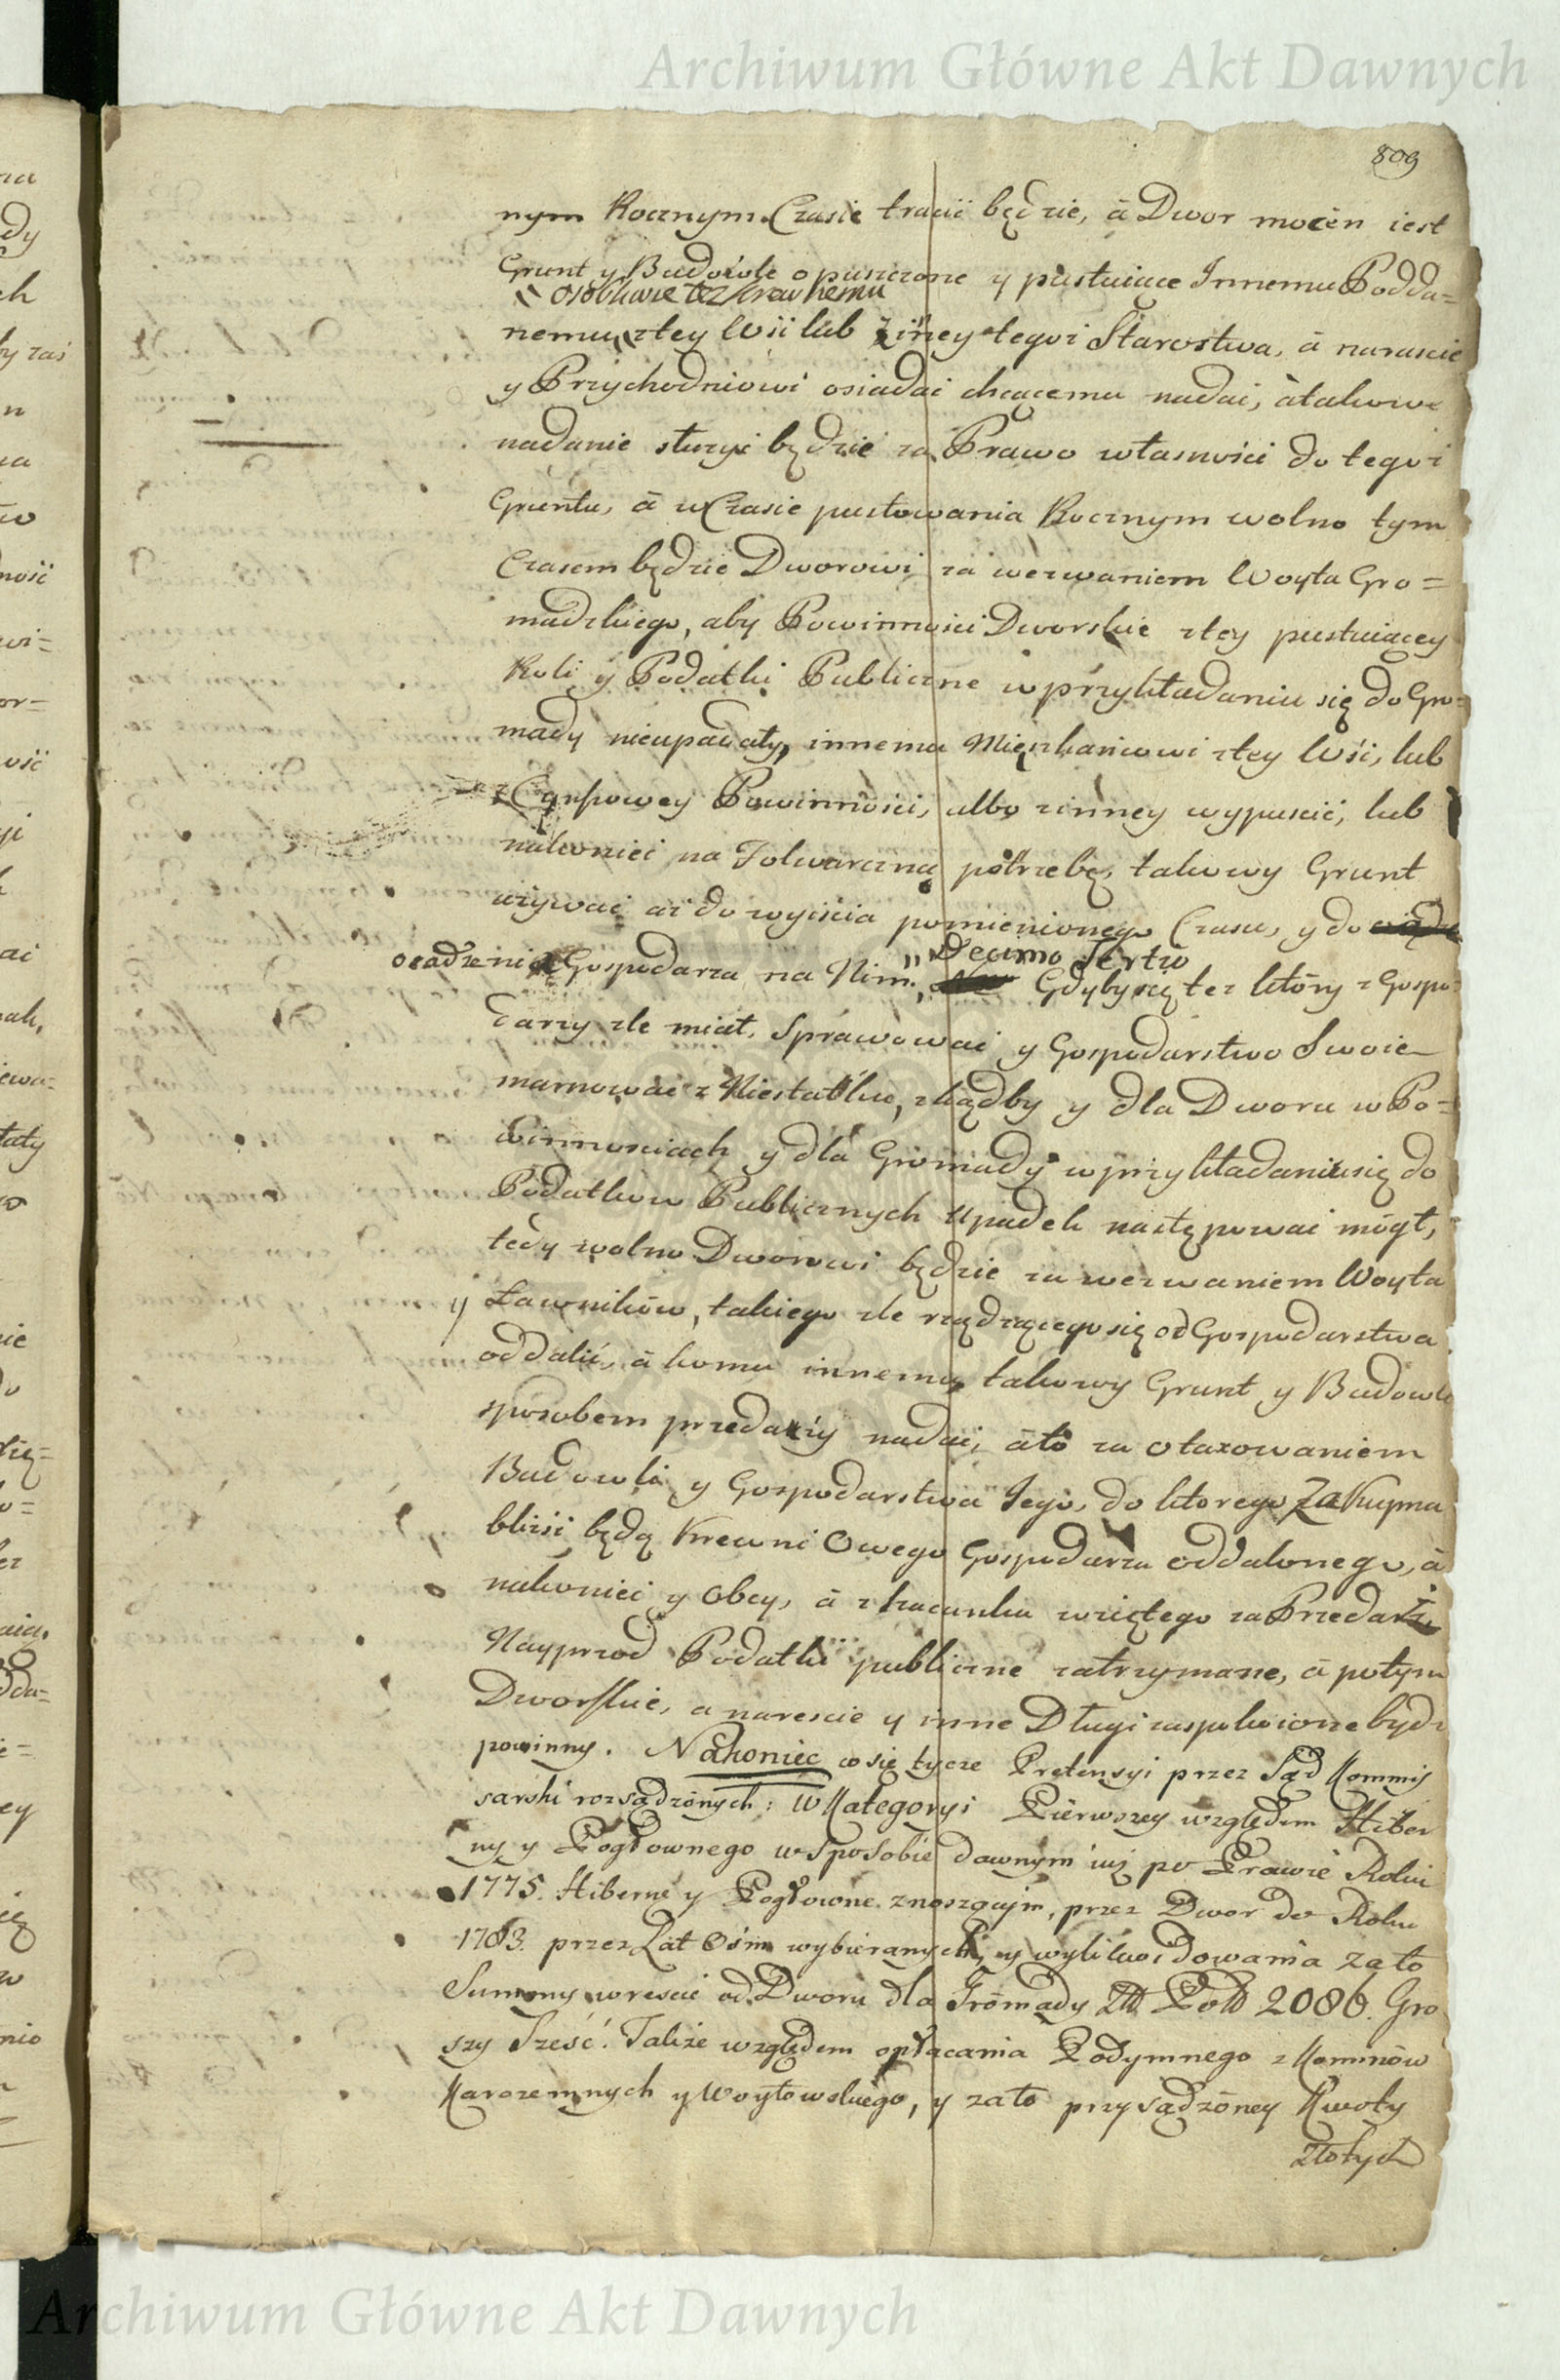 Archiwum Główne Akt Dawnych
809
nym Rocznym Czasie tracić będzie, à Dwor mocen iest
Grunt y Budowle opuszczone y pustuiące Innemu Podda=
osobliwie też krewnemu
nemu ztey Wsi lub z inney tegoż Starostwa, à narescie
y Przychodniowi osiadać chcącemu nadać, à takowe
nadanie służyć będzie za Prawo własności do tegoż
Gruntu, à w Czasie pustowania Rocznym wolno tym
Czasem będzie Dworowi za wezwaniem Woyta Gro=
madzkiego, aby Powinności Dworskie ztey pustuiącey
Roli y Podatki Publiczne w przykładaniu się do Gro=
mady nieupadały, innemu Mięszkańcowi ztey Wsi, lub
z Czynszowey Powinności, albo z inney wypuscić, lub
nakoniec na Folwarczną potrzebę, takowy Grunt
używać aż do wyiścia pomienionego Czasu, y do
osadzenia Gospodarza na Nim. Decimo Tertio Gdyby się też ktòry z Gospo=
darzy zle miał Sprawować y Gospodarstwo Swoie
marnować z Niestatku, zkądby y dla Dworu w Po=
winnosciach y dla Gromady w przykładaniu się do
Podatkow Publicznych upadek następować mògł,
tedy wolno Dworowi będzie za wezwaniem Woyta
y Ławnikòw, takiego zle rządzącego się od Gospodarstwa
oddalić, à komu innemu takowy Grunt y Budowle
sposobem przedaży nadać, à to za otaxowaniem
Budowli y Gospodarstwa Jego, do ktorego Zakupna
bliżsi będą Krewni Owego Gospodarza oddalonego, à
nakoniec y Obcy, à z szacunku wziętego za Przedaż
Nayprzod Podatki publiczne zatrzymane, à potym
Dworskie, a narescie y inne Długi zaspokoione bydź
powinny. Nakoniec co się tycze Pretensyi przez Sąd Kommis
sarski rozsądzònych: W Kategoryi Pierwszey względem Hiber
ny y Pogłownego w Sposobie dawnym iuż po Prawie Roku
1775. Hibernę y Pogłowne znoszącym, przez Dwor do Roku
1783. przez Lat Ośm wybieranych, y wylikwidowania za to
Summy wrescie od Dworu dla Gromady Zł Pol 2086. Gro
szy Sześć. Także względem opłacania Podymnego z Kominòw
Karczemnych y Woytowskiego, y za to przysądzòney Kwoty
Złotych
Archiwum Główne Akt Dawnych